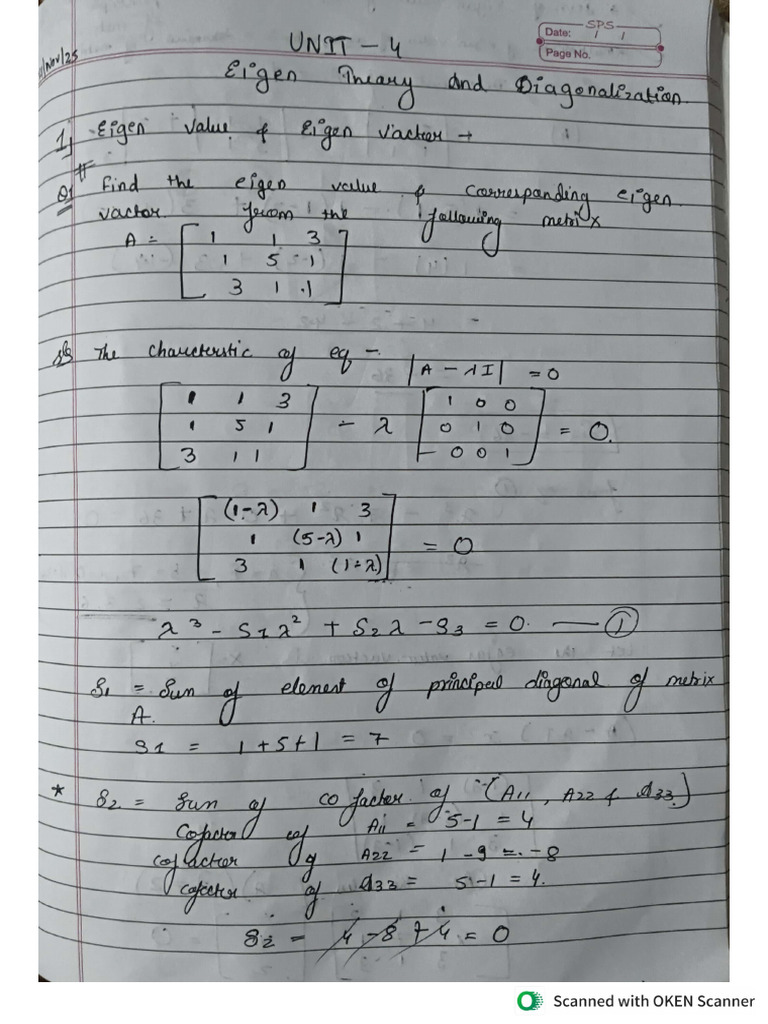 SPS
Date: / /
Page No.
/Nov/25
UNIT - 4
Eigen Theary And Diagonalization
1, Eigen value & Eigen Vacter →
#
Q1 Find the eigen value & Carresponding eigen
vactor from the following metrix
A = [ 1 1 3
1 5 1
3 1 1 ]
The charcterstic of eq - |A - λI| = 0
[ 1 1 3
1 5 1
3 1 1 ] - λ [ 1 0 0
0 1 0
0 0 1 ] = 0.
[ (1-λ) 1 3
1 (5-λ) 1
3 1 (1-λ) ] = 0
λ³ - S1λ² + S2λ - S3 = 0. — ①
S1 = Sum of element of principal diagonal of metrix
A.
S1 = 1 + 5 + 1 = 7
* S2 = Sum of co factor of (A11, A22 & A33)
Cofactor of A11 = 5-1 = 4
cofactor of A22 = 1 - 9 = -8
cofactor of A33 = 5-1 = 4.
S2 = 4 - 8 + 4 = 0
Scanned with OKEN Scanner